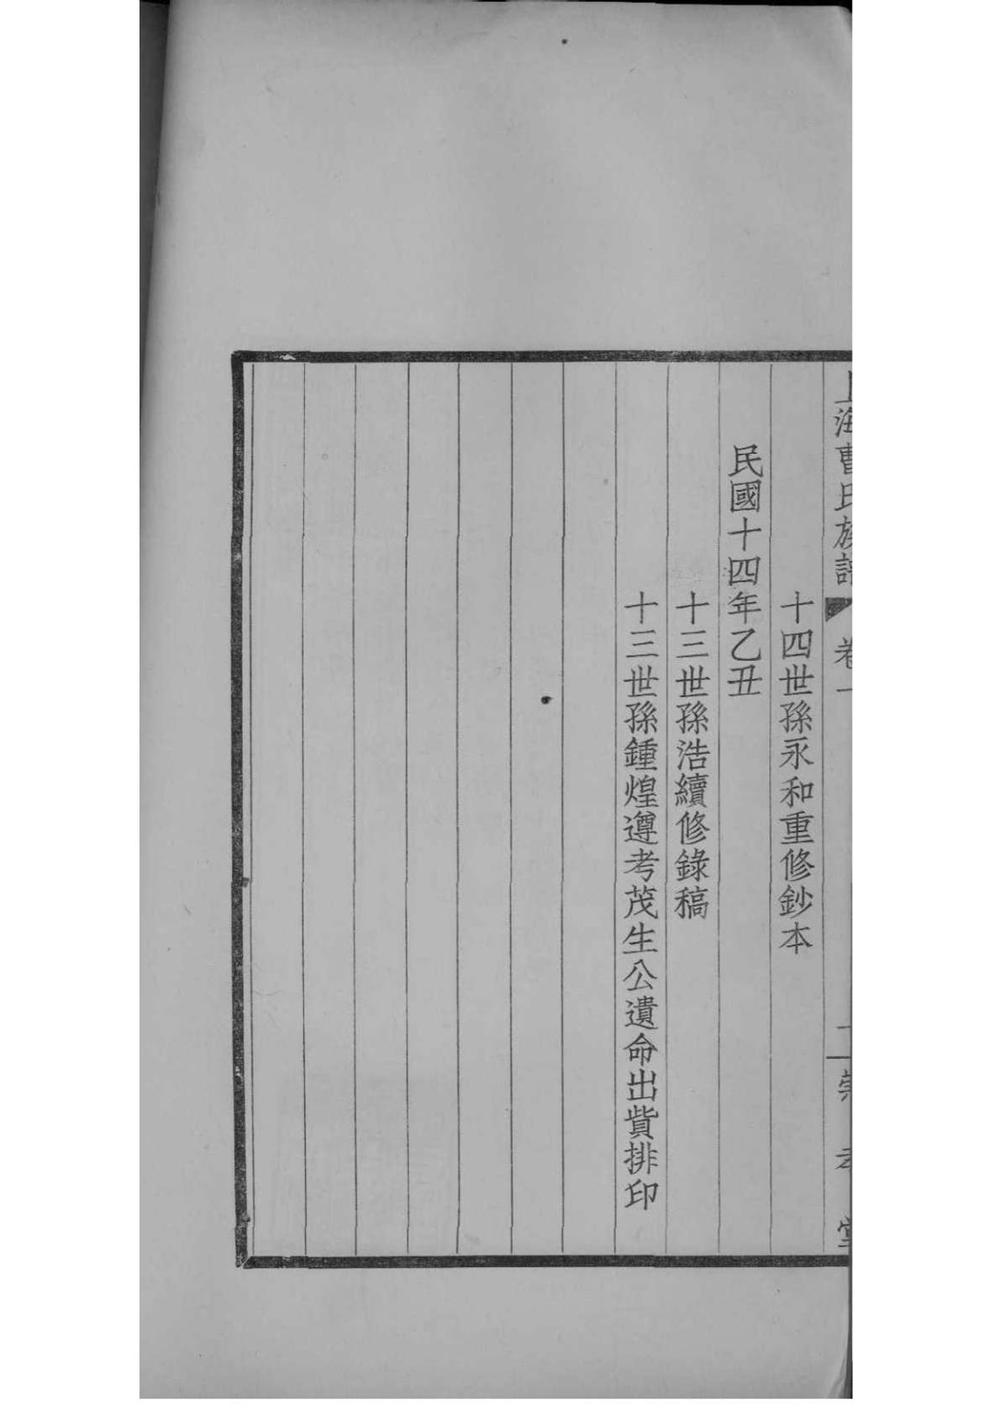 上海曹氏族譜
卷一
崇孝堂
十四世孫永和重修鈔本
民國十四年乙丑
十三世孫浩續修錄稿
十三世孫鍾煌遵考茂生公遺命出貲排印